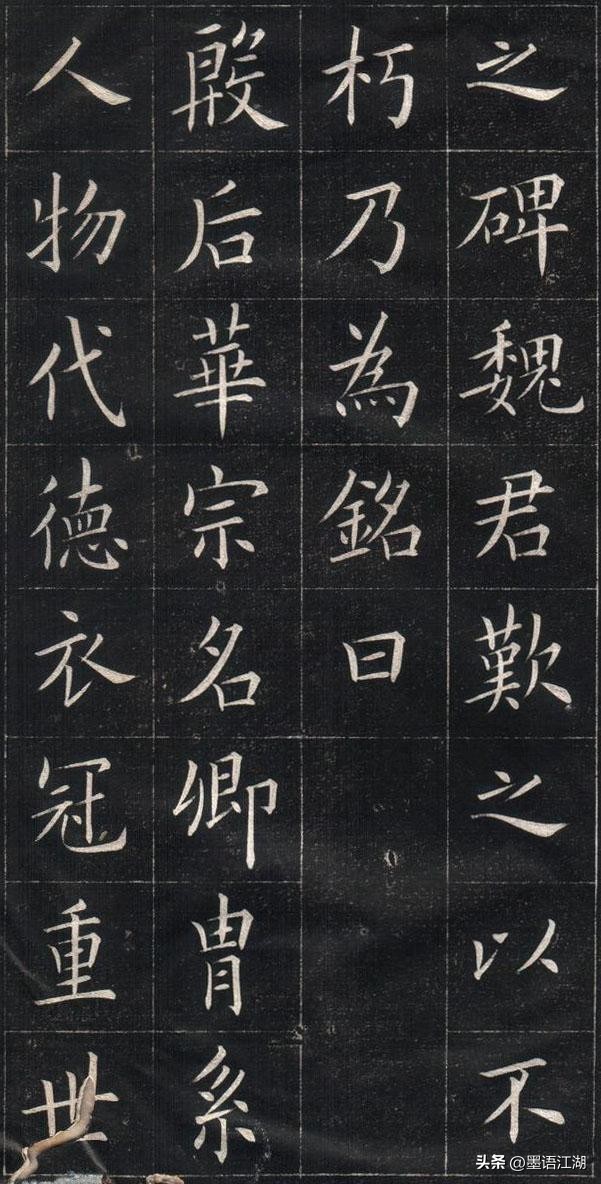 之碑魏君歎之以不
朽乃為銘曰
殷后華宗名卿胄系
人物代德衣冠重世
头条 @墨语江湖